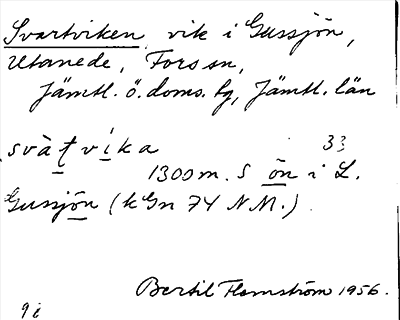 Svartviken vik i Gussjön,
Utanede, Fors sn,
Jämtl. ö. doms. fg, Jämtl. län
svàt̠ví̠ka 33
1300 m. S ön i L.
Gussjön (kGn 74 NM.)
Bertil Flemström 1956.
9i